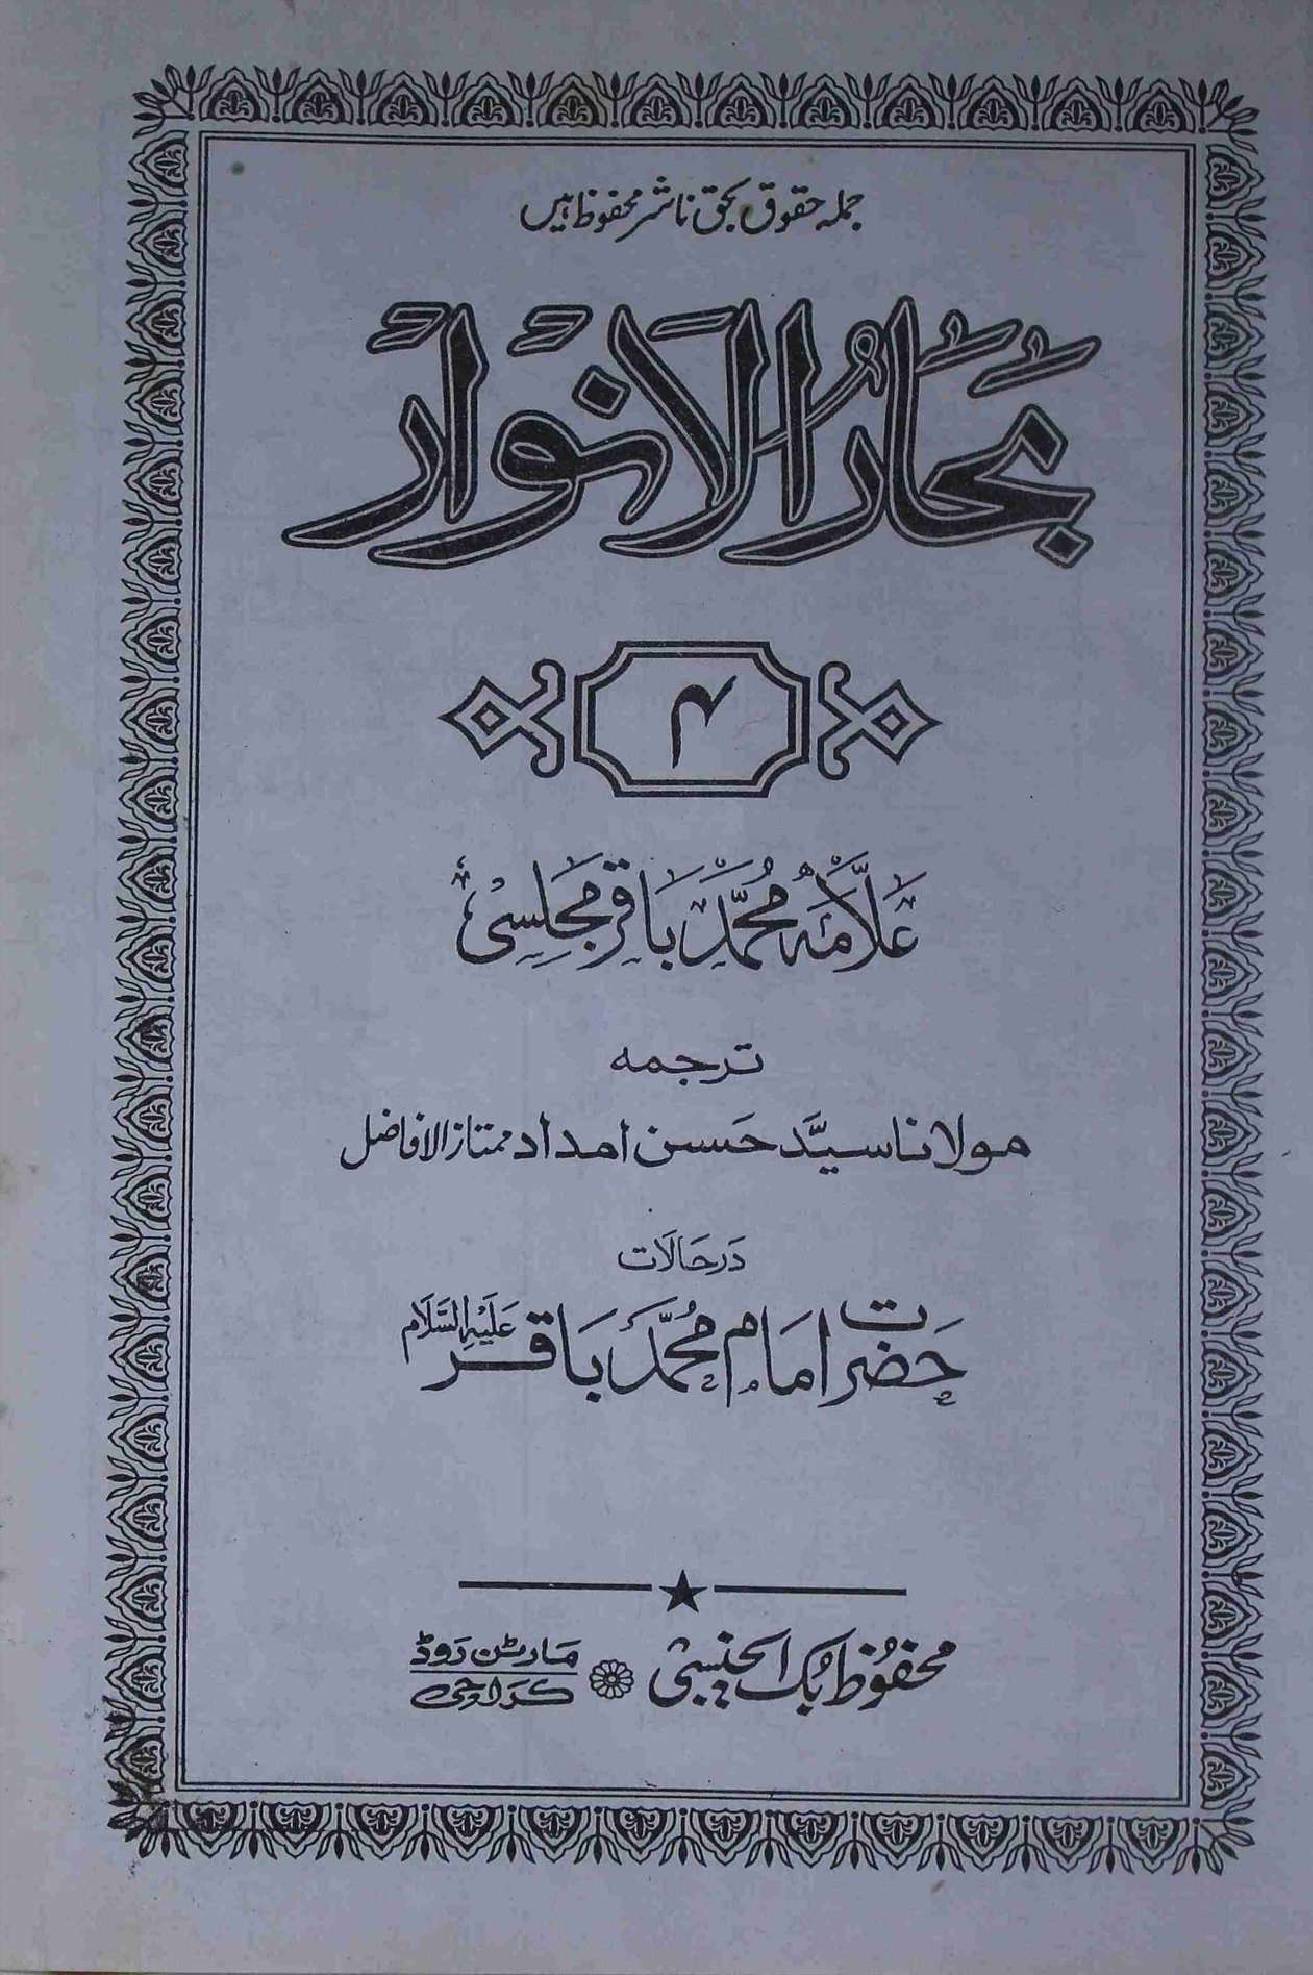 جملہ حقوق بحق ناشر محفوظ ہیں
بِحَارُ الاَنوَار
۴
عَلَّامَہ مُحَمَّد بَاقِر مَجلِسِی
ترجمہ
مولانا سیَّد حَسن امداد ممتاز الافاضل
دَر حَالَات
حَضرت اِمَام مُحَمَّد بَاقِر عَلَیْہِ السَّلَام
محفُوظ بُک ایجنسی
مَارٹن رَوڈ
کَراچی